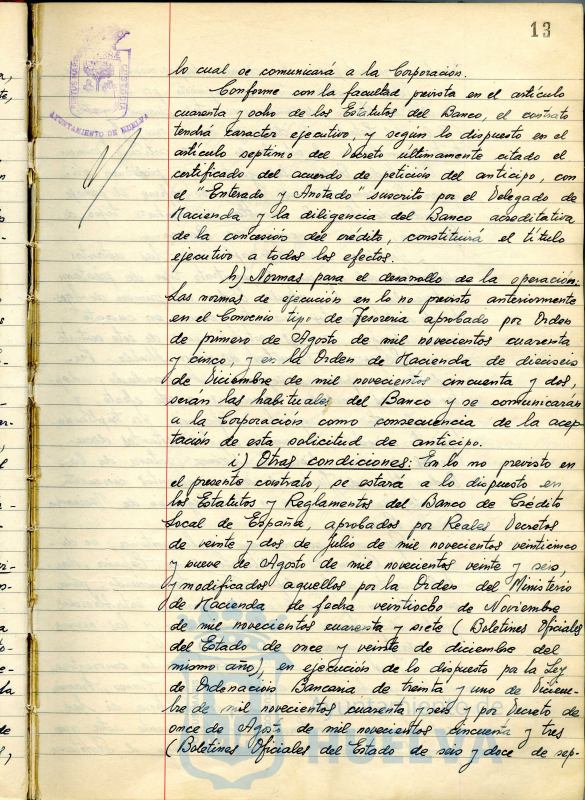 13
AYUNTAMIENTO DE HUELVA
lo cual se comunicará a la Corporación.
Conforme con la facultad prevista en el artículo
cuarenta y ocho de los Estatutos del Banco, el contrato
tendrá caracter ejecutivo, y según lo dispuesto en el
artículo septimo del Decreto últimamente citado el
certificado del acuerdo de petición del anticipo, con
el "Enterado y Anotado" suscrito por el Delegado de
Hacienda y la diligencia del Banco acreditativa
de la concesión del crédito, constituirá el título
ejecutivo a todos los efectos.
h) Normas para el desarrollo de la operación:
Las normas de ejecución en lo no previsto anteriormente
en el Convenio tipo de Tesoreria aprobado por Orden
de primero de Agosto de mil novecientos cuarenta
y cinco, y en la Orden de Hacienda de dieciseis
de Diciembre de mil novecientos cincuenta y dos,
seran las habituales del Banco y se comunicarán
a la Corporación como consecuencia de la acep-
tación de esta solicitud de anticipo.
i) Otras condiciones: En lo no previsto en
el presente contrato, se estará a lo dispuesto en
los Estatutos y Reglamentos del Banco de Crédito
Local de España, aprobados por Reales Decretos
de veinte y dos de Julio de mil novecientos veinticinco
y nueve de Agosto de mil novecientos veinte y seis,
y modificados aquellos por la Orden del Ministerio
de Hacienda de fecha veintiocho de Noviembre
de mil novecientos cuarenta y siete (Boletines Oficiales
del Estado de once y veinte de diciembre del
mismo año), en ejecución de lo dispuesto pa la Ley
de Ordenación Bancaria de treinta y uno de Diciem-
bre de mil novecientos cuarenta y seis y por Decreto de
once de Agosto de mil novecientos cincuenta y tres
(Boletines Oficiales del Estado de seis y doce de sep-